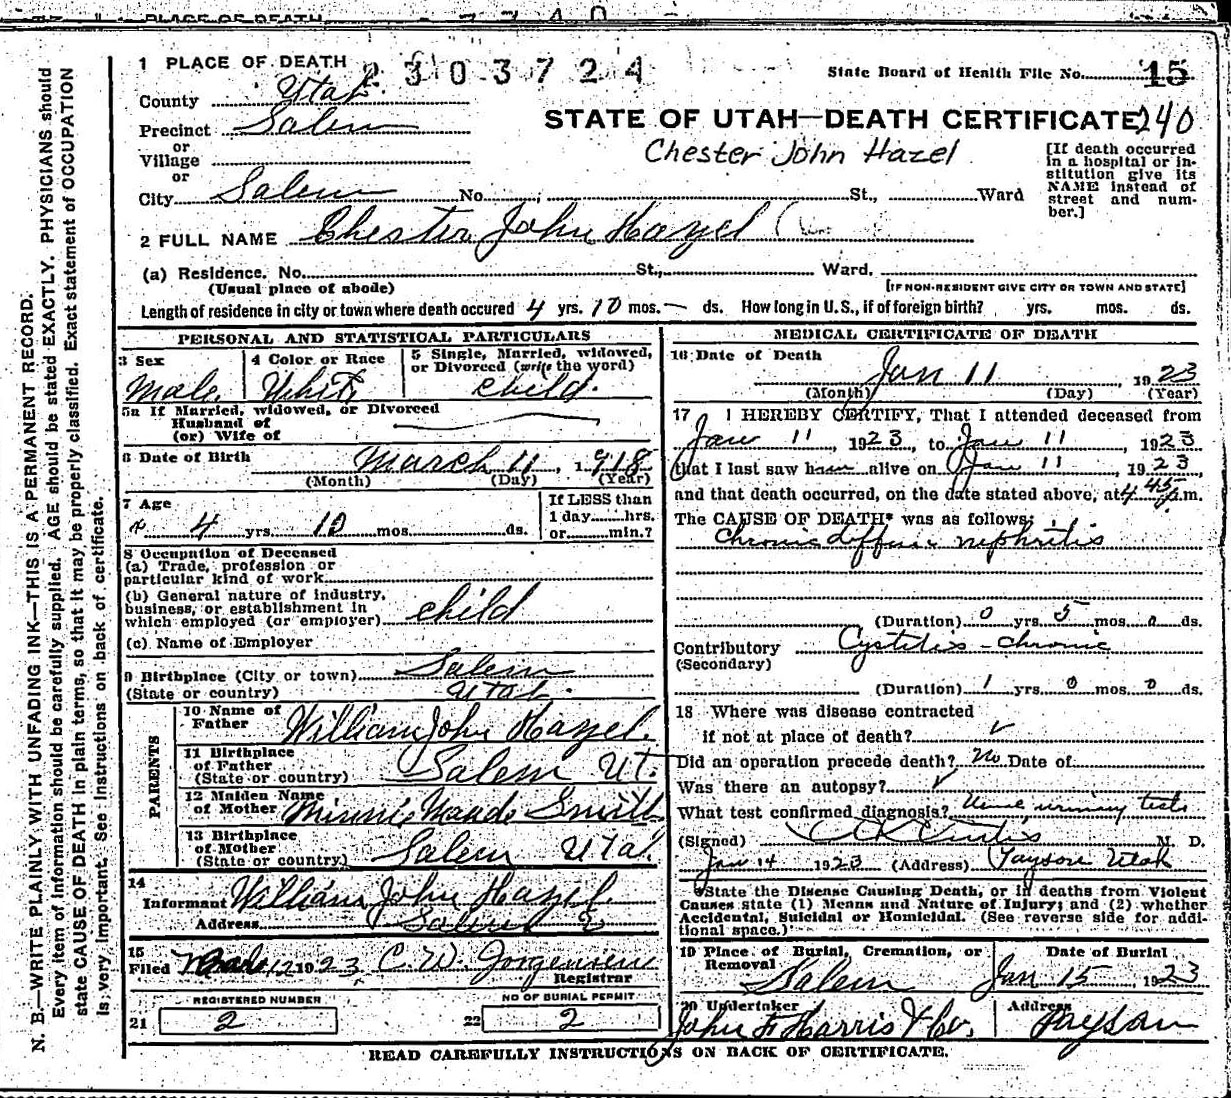 1 PLACE OF DEATH 2303724
State Board of Health File No. 15
County Utah
STATE OF UTAH—DEATH CERTIFICATE 240
Precinct Salem
Chester John Hazel
or
Village
or
City Salem No. ; St., Ward
[If death occurred
in a hospital or in-
stitution give its
NAME instead of
street and num-
ber.]
2 FULL NAME Chester John Hazel
(a) Residence. No. St., Ward.
(Usual place of abode) [IF NON-RESIDENT GIVE CITY OR TOWN AND STATE]
Length of residence in city or town where death occured 4 yrs. 10 mos. — ds. How long in U.S., if of foreign birth? yrs. mos. ds.
PERSONAL AND STATISTICAL PARTICULARS
3 Sex
Male
4 Color or Race
White
5 Single, Married, widowed,
or Divorced (write the word)
child.
5a If Married, widowed, or Divorced
Husband of
(or) Wife of
6 Date of Birth March 11, 1918
(Month) (Day) (Year)
7 Age
4 yrs. 10 mos. ds.
If LESS than
1 day hrs.
or min.?
8 Occupation of Deceased
(a) Trade, profession or
particular kind of work
(b) General nature of industry,
business, or establishment in
which employed (or employer) child
(c) Name of Employer
9 Birthplace (City or town) Salem
(State or country) Utah.
PARENTS
10 Name of
Father William John Hazel.
11 Birthplace
of Father
(State or country) Salem Ut.
12 Maiden Name
of Mother Minnie Maade Smith
13 Birthplace
of Mother
(State or country) Salem Utah.
14
Informant William John Hazel
Address Salem
15
Filed 12 1923, C. W. Jorgensen
Registrar
REGISTERED NUMBER
21 2
NO OF BURIAL PERMIT
22 2
MEDICAL CERTIFICATE OF DEATH
16 Date of Death
Jan 11, 1923
(Month) (Day) (Year)
17 I HEREBY CERTIFY, That I attended deceased from
Jan 11, 1923, to Jan 11, 1923
that I last saw him alive on Jan 11, 1923
and that death occurred, on the date stated above, at 4 45 p.m.
The CAUSE OF DEATH* was as follows:
Chronic diffuse nephritis
(Duration) 0 yrs. 5 mos. 0 ds.
Contributory Cystitis - Chronic
(Secondary)
(Duration) 1 yrs. 0 mos. 0 ds.
18 Where was disease contracted
if not at place of death? ✓
Did an operation precede death? No Date of
Was there an autopsy? ✓
What test confirmed diagnosis? urinary tests
(Signed) Curtis M. D.
Jan 14 1923 (Address) Payson Utah
*State the Disease Causing Death, or in deaths from Violent
Causes state (1) Means and Nature of Injury; and (2) whether
Accidental, Suicidal or Homicidal. (See reverse side for addi-
tional space.)
19 Place of Burial, Cremation, or
Removal
Salem
Date of Burial
Jan 15, 1923
20 Undertaker
John F Harris & Co.
Address
Payson
READ CAREFULLY INSTRUCTIONS ON BACK OF CERTIFICATE.
N. B—WRITE PLAINLY WITH UNFADING INK—THIS IS A PERMANENT RECORD.
Every item of information should be carefully supplied. AGE should be stated EXACTLY. PHYSICIANS should
state CAUSE OF DEATH in plain terms, so that it may be properly classified. Exact statement of OCCUPATION
is very important. See instructions on back of certificate.